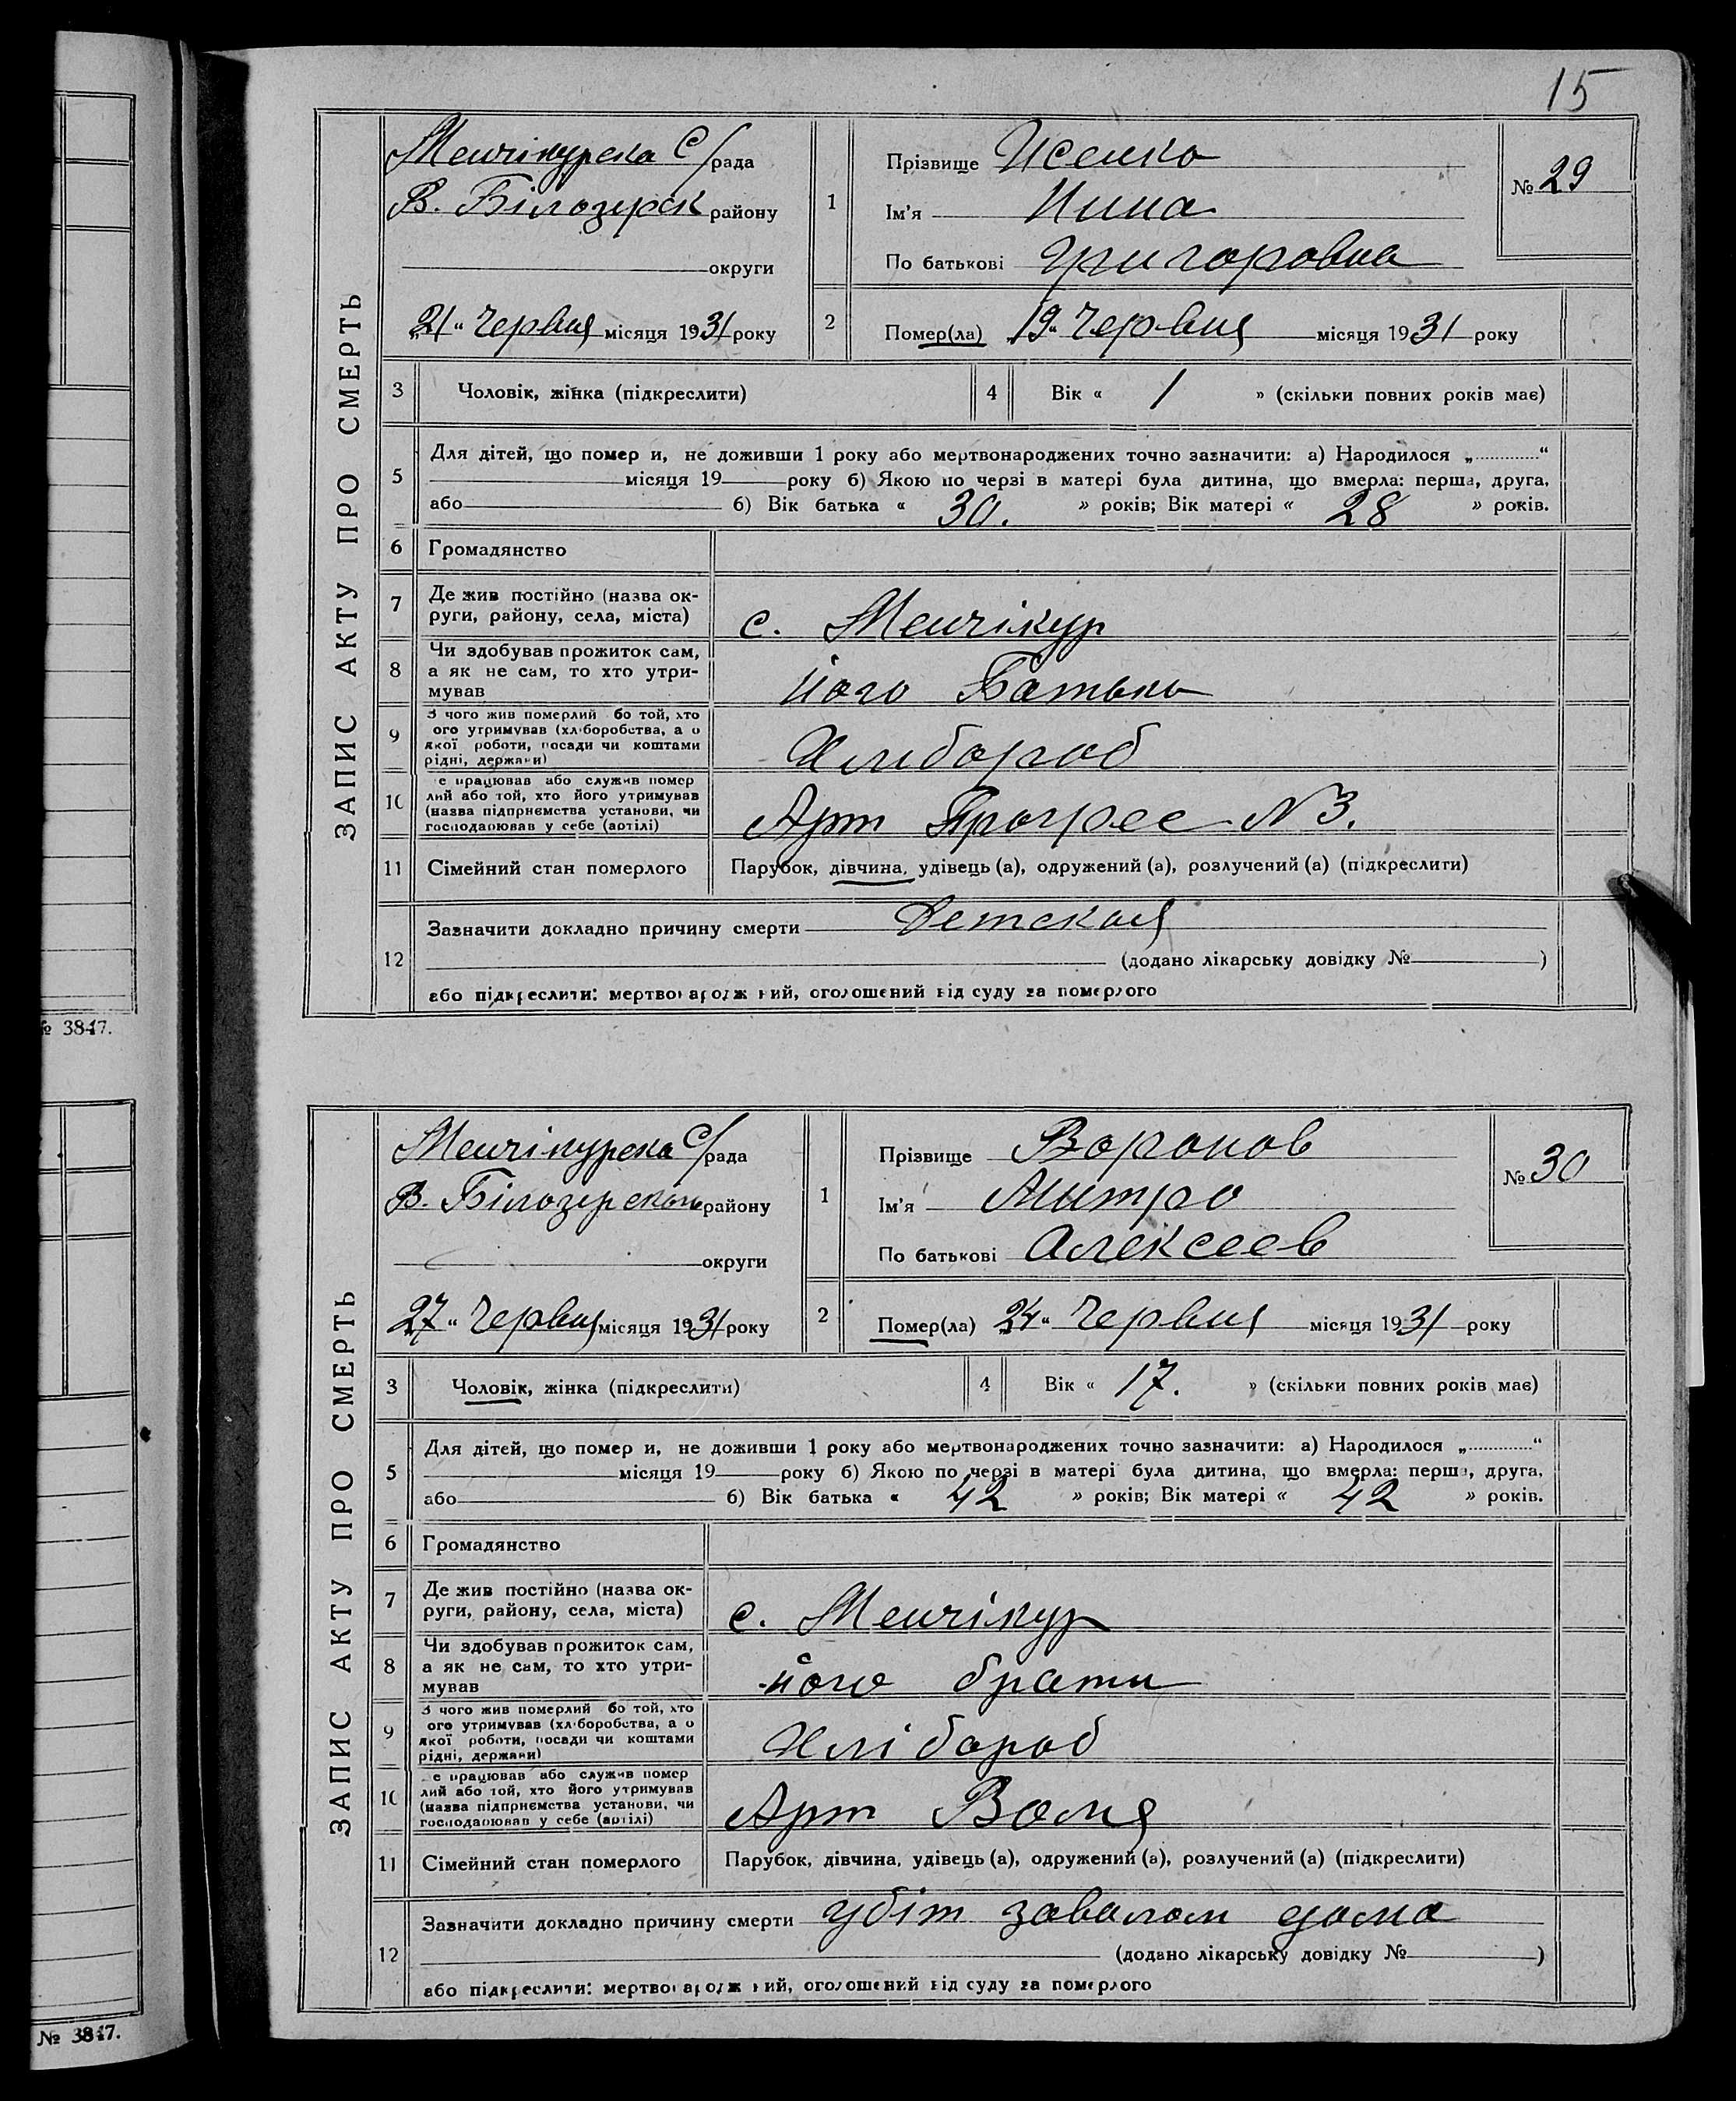 15
ЗАПИС АКТУ ПРО СМЕРТЬ
Менчікурска С/рада
В. Білозерск району
округи
„21“ Червня місяця 1931 року
1
Прізвище Исенко
Ім'я Нина
По батькові Григоровна
№ 29
2
Помер(ла) 19 „ Червня місяця 1931 року
3 Чоловік, жінка (підкреслити)
4 Вік « 1 » (скільки повних років має)
5
Для дітей, що помер и, не доживши 1 року або мертвонароджених точно зазначити: а) Народилося „ “
місяця 19 року б) Якою по черзі в матері була дитина, що вмерла: перша, друга,
або б) Вік батька « 30. » років; Вік матері « 28 » років.
6 Громадянство
7 Де жив постійно (назва ок-
руги, району, села, міста) с. Менчікур
8 Чи здобував прожиток сам,
а як не сам, то хто утри-
мував його Батько
9 З чого жив померлий бо той, хто
ого утримував (хл боробства, а о
якої роботи, посади чи коштами
рідні, держави) Хлибороб
10 е працював або служив помер
лий або той, хто його утримував
(назва підприємства установи, чи
господарював у себе (артілі) Арт Прогрес N 3.
11 Сімейний стан померлого Парубок, дівчина, удівець (а), одружений (а), розлучений (а) (підкреслити)
12
Зазначити докладно причину смерти Детская
(додано лікарську довідку № )
або підкреслити: мертвонародж ний, оголошений від суду за померлого
ЗАПИС АКТУ ПРО СМЕРТЬ
Менчікурска С/рада
В. Білозерсkого району
округи
„27“ Червня місяця 1931 року
1
Прізвище Воронов
Ім'я Митро
По батькові Алексеев
№ 30
2
Помер(ла) 24 „ Червня місяця 1931 року
3 Чоловік, жінка (підкреслити)
4 Вік « 17. » (скільки повних років має)
5
Для дітей, що помер и, не доживши 1 року або мертвонароджених точно зазначити: а) Народилося „ “
місяця 19 року б) Якою по черзі в матері була дитина, що вмерла: перша, друга,
або б) Вік батька « 42 » років; Вік матері « 42 » років.
6 Громадянство
7 Де жив постійно (назва ок-
руги, району, села, міста) с. Менчікур
8 Чи здобував прожиток сам,
а як не сам, то хто утри-
мував його брати
9 З чого жив померлий бо той, хто
ого утримував (хл боробства, а о
якої роботи, посади чи коштами
рідні, держави) Хлібороб
10 е працював або служив помер
лий або той, хто його утримував
(назва підприємства установи, чи
господарював у себе (артілі) Арт Воля
11 Сімейний стан померлого Парубок, дівчина, удівець (а), одружений (а), розлучений (а) (підкреслити)
12
Зазначити докладно причину смерти убіт завалом дома
(додано лікарську довідку № )
або підкреслити: мертвонародж ний, оголошений від суду за померлого
№ 3847.
№ 3847.